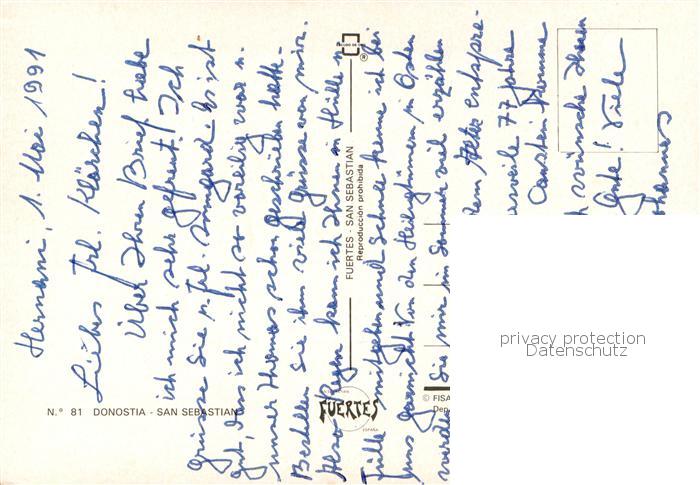 Hernani, 1. Mai 1991
Liebes Frl. Klärchen!
Über Ihren Brief habe
ich mich sehr gefreut! Ich
grüsse Sie u. Frl. Irmgard. Es ist
gut, dass ich nicht so voreilig war u.
unser Thomas schon geschrieben hatte.
Bestellen Sie ihm viele Grüsse von mir.
Also Regen kann ich Ihnen in Hülle u.
Fülle mitgeben und Schnee kenne ich bei
uns garnicht. Von den Heiligtümern in Osten
werden Sie mir im Sommer viel erzählen
dem Alter entspre-
77 Jahre
wünsche Ihnen
Gute! Viele
N.° 81 DONOSTIA - SAN SEBASTIAN
FUERTES - SAN SEBASTIAN
Reproducción prohibida
®
FUERTES
ESPAÑA
© FISA
Dep
privacy protection
Datenschutz